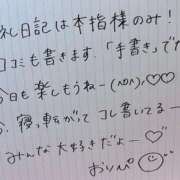 礼日記は本指様のみ!
コミも書きます.「手書き」で
今日も楽しもうねー(^o^)、♡♡
、寝っ転がってコレ書いてるー
みんな大好きだよー♡
おりぺ